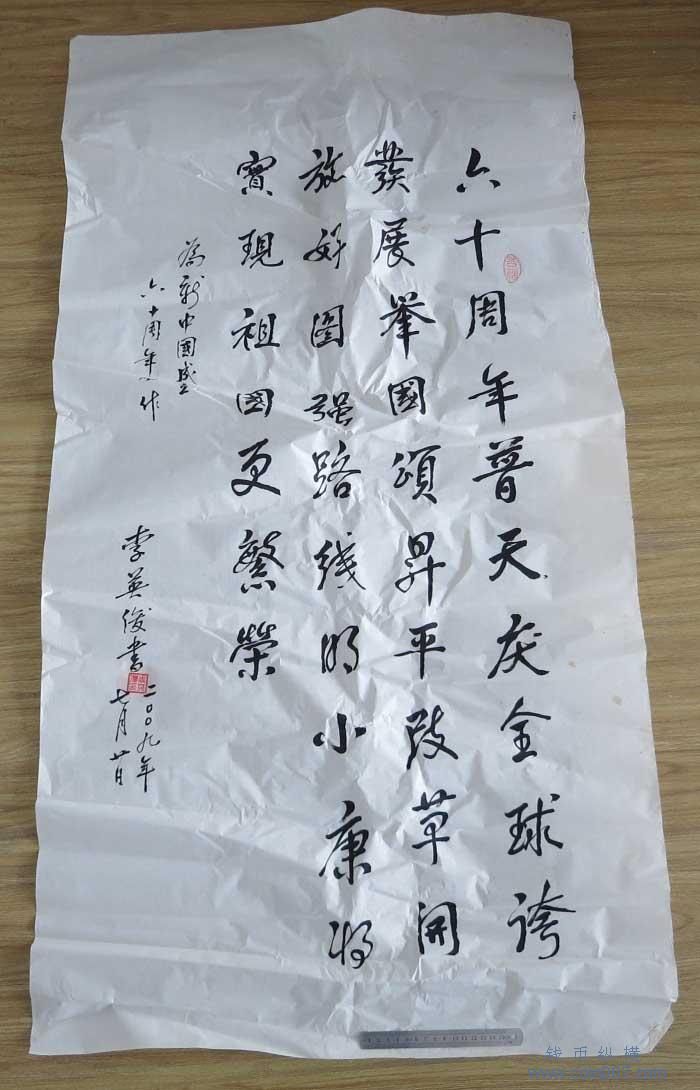 六十周年普天庆全球誇
發展舉國頌昇平改革開
放好圖强路线明小康将
實現祖國更繁榮
為新中國成立
六十周年作
李英俊書
二〇〇九年
七月廿日
钱币纵横
www.coin007.com